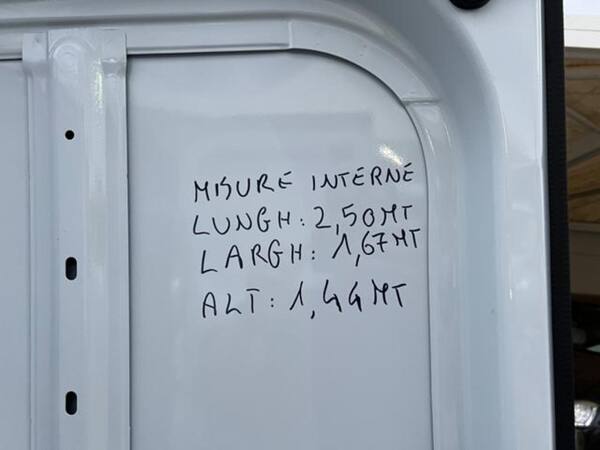 MISURE INTERNE
LUNGH: 2,50 MT
LARGH: 1,67 MT
ALT: 1,44 MT